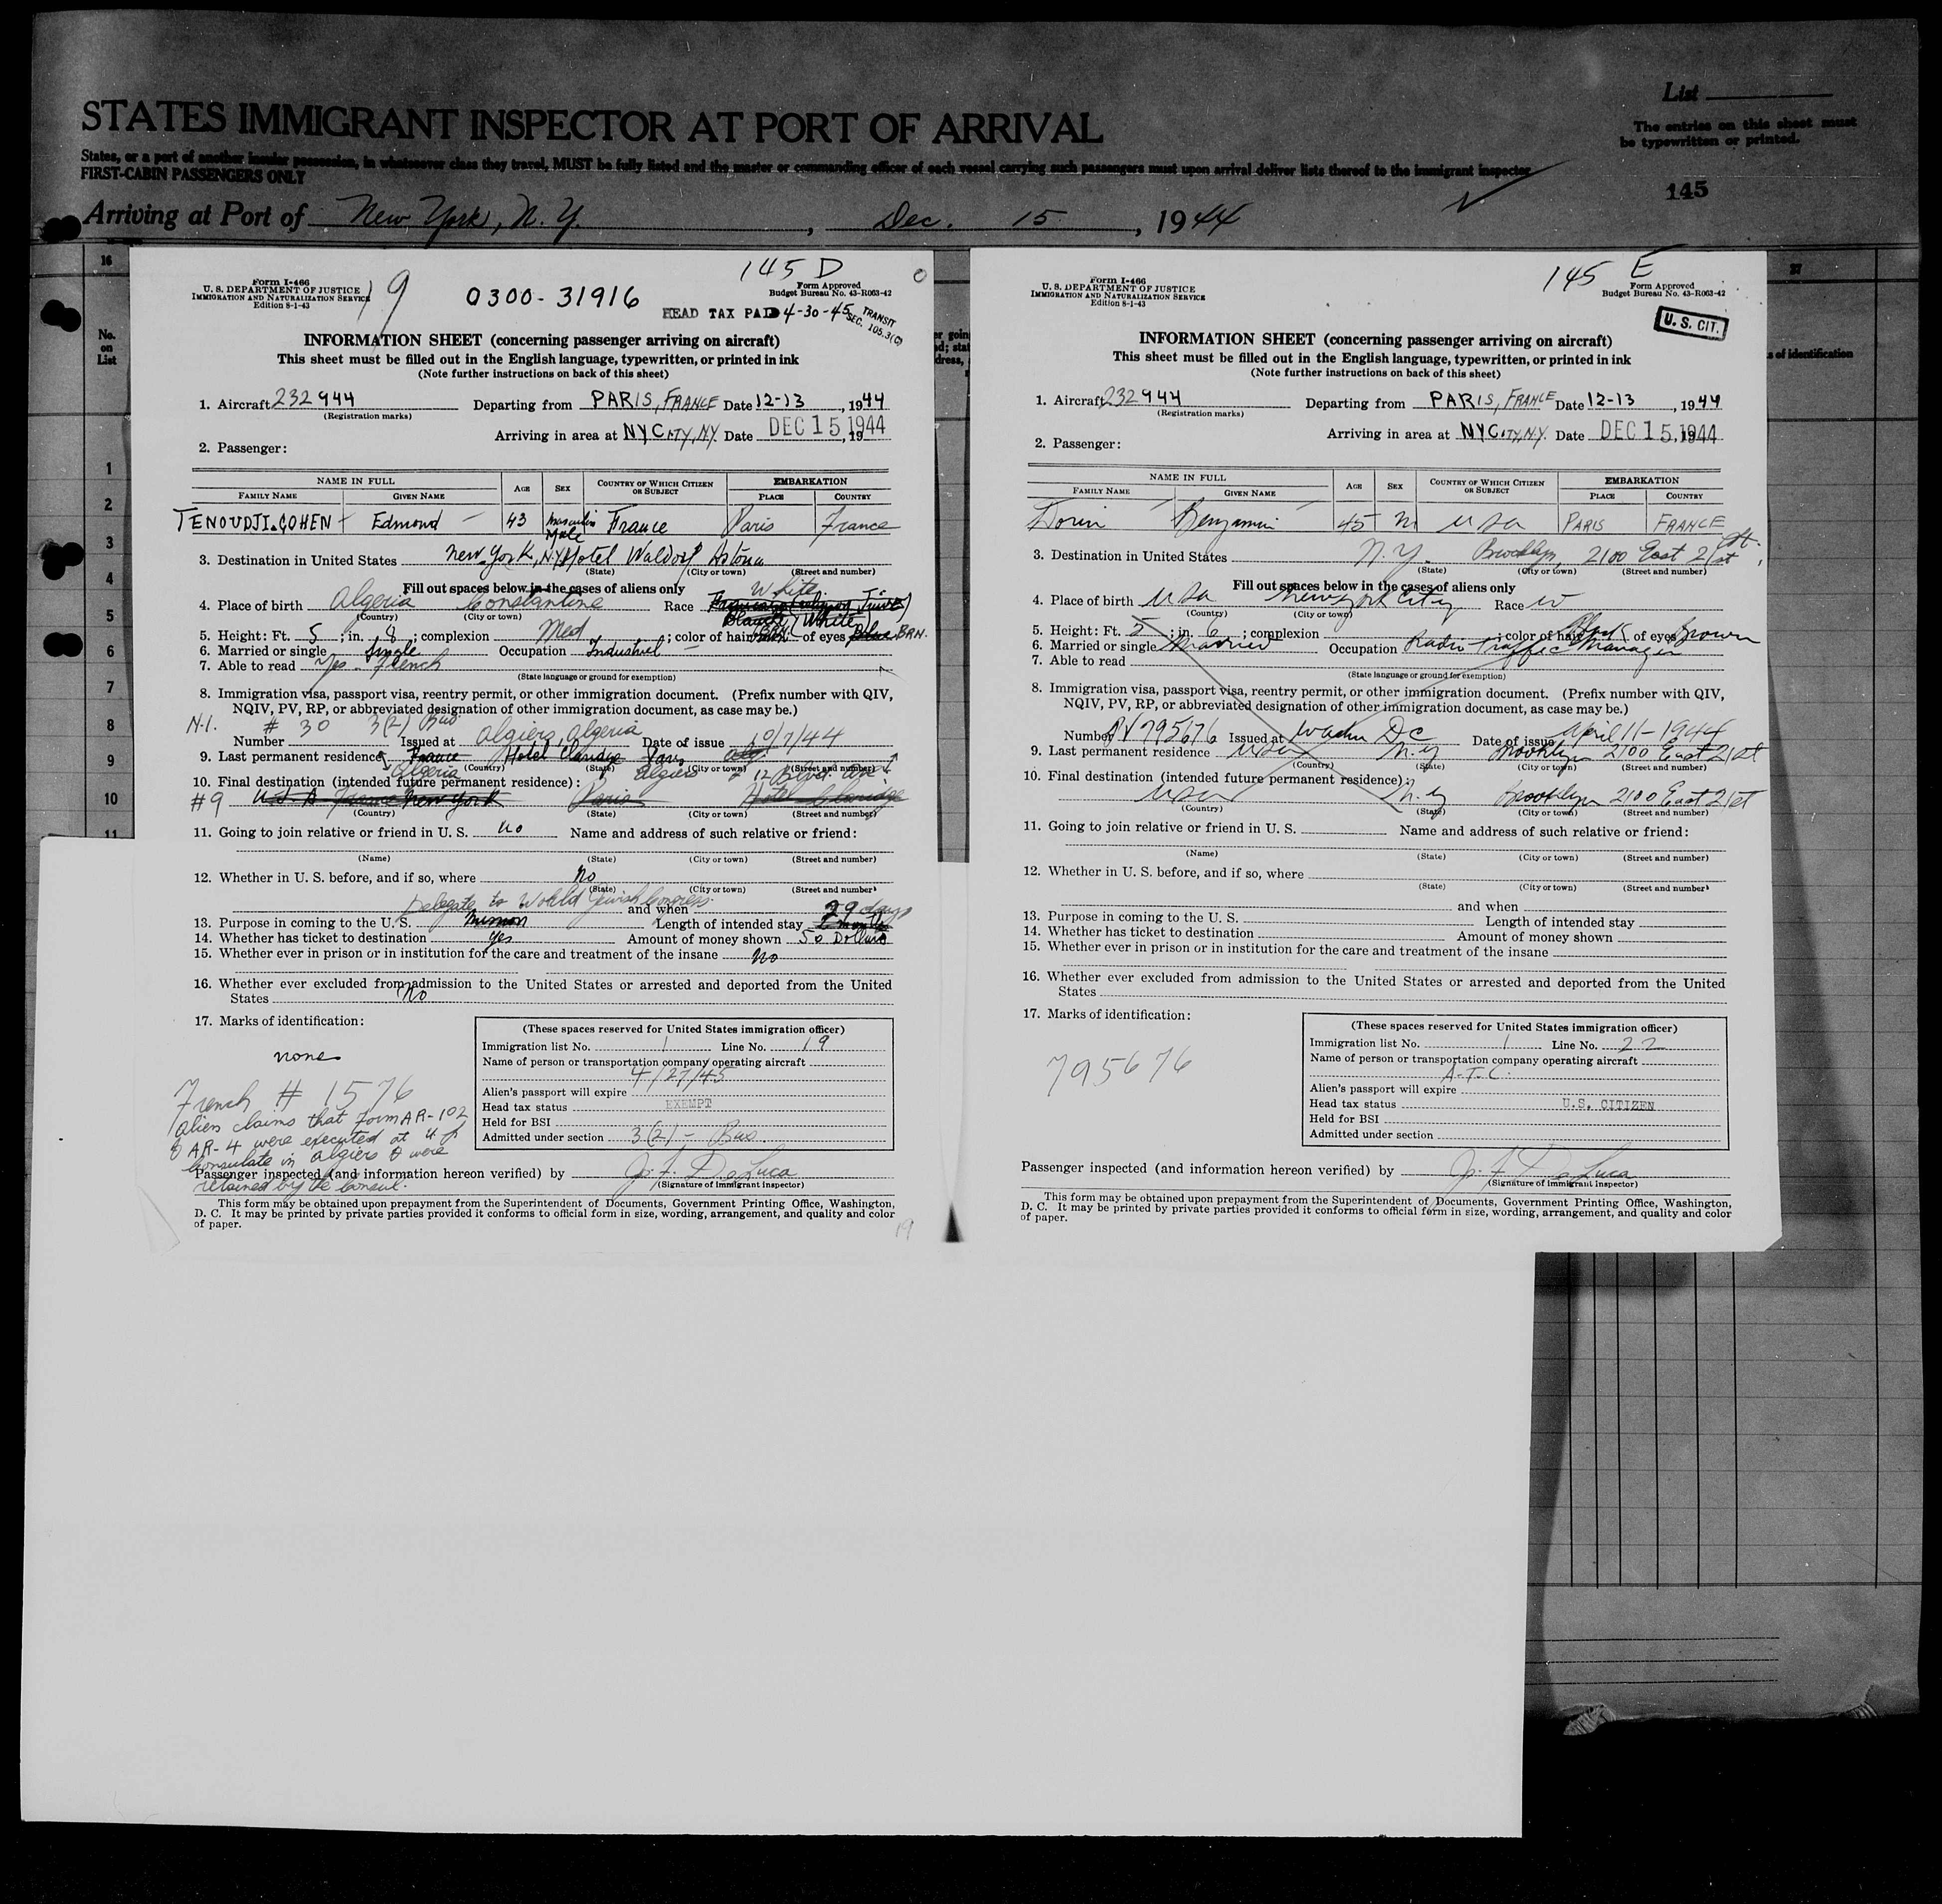 STATES IMMIGRANT INSPECTOR AT PORT OF ARRIVAL
List
The entries on this sheet must
be typewritten or printed.
States, or a port of another insular possession, in whatsoever class they travel, MUST be fully listed and the master or commanding officer of each vessel carrying such passengers must upon arrival deliver lists thereof to the immigrant inspector
FIRST-CABIN PASSENGERS ONLY
145
Arriving at Port of New York, N. Y. , Dec. 15 , 1944
16
No.
on
List
1
2
3
4
5
6
7
8
9
10
11
37
s of identification
145 D
Form I-466
U. S. DEPARTMENT OF JUSTICE
IMMIGRATION AND NATURALIZATION SERVICE
Edition 8-1-43
19
0300-31916
Form Approved
Budget Bureau No. 43-R063-42
HEAD TAX PAID 4-30-45
TRANSIT
SEC. 105.3(C)
INFORMATION SHEET (concerning passenger arriving on aircraft)
This sheet must be filled out in the English language, typewritten, or printed in ink
(Note further instructions on back of this sheet)
1. Aircraft 232944 Departing from PARIS, FRANCE Date 12-13, 1944
(Registration marks)
Arriving in area at NY CITY, NY. Date DEC 15 1944
2. Passenger:
NAME IN FULL AGE SEX COUNTRY OF WHICH CITIZEN OR SUBJECT EMBARKATION
FAMILY NAME GIVEN NAME PLACE COUNTRY
TENOUDJI.COHEN Edmond 43 Male France Paris France
3. Destination in United States New York, N.Y. Hotel Waldorf Astoria
(State) (City or town) (Street and number)
Fill out spaces below in the cases of aliens only
White
4. Place of birth Algeria Constantine Race
(Country) (City or town)
5. Height: Ft. 5 ; in. 8 ; complexion Med ; color of hair of eyes BRN.
6. Married or single Single Occupation Industriel
7. Able to read Yes - French
(State language or ground for exemption)
8. Immigration visa, passport visa, reentry permit, or other immigration document. (Prefix number with QIV,
NQIV, PV, RP, or abbreviated designation of other immigration document, as case may be.)
N.I. # 30 3(2) Bus.
Number Issued at Algiers, Algeria Date of issue 10/7/44
9. Last permanent residence France Hotel Claridge Paris
(Country) (State) (City or town) (Street and number)
Algeria Algiers 12 Blvd.
10. Final destination (intended future permanent residence):
#9 U.S.A France New York Paris Hotel Claridge
(Country) (State) (City or town) (Street and number)
11. Going to join relative or friend in U. S. No Name and address of such relative or friend:
(Name) (State) (City or town) (Street and number)
12. Whether in U. S. before, and if so, where No
(State) (City or town) (Street and number)
Delegate to World Jewish Congress. and when 29 days
13. Purpose in coming to the U. S. mission Length of intended stay 2 months
14. Whether has ticket to destination Yes Amount of money shown 50 Dollars
15. Whether ever in prison or in institution for the care and treatment of the insane No
16. Whether ever excluded from admission to the United States or arrested and deported from the United
States No
17. Marks of identification:
none
French # 1576
Alien claims that Form AR-102
& AR-4 were executed at U S
Consulate in Algiers & were
retained by the Consul.
(These spaces reserved for United States immigration officer)
Immigration list No. 1 Line No. 19
Name of person or transportation company operating aircraft
4/27/45
Alien's passport will expire
Head tax status EXEMPT
Held for BSI
Admitted under section 3(2) - Bus.
Passenger inspected (and information hereon verified) by J. F. DeLuca
(Signature of Immigrant Inspector)
This form may be obtained upon prepayment from the Superintendent of Documents, Government Printing Office, Washington,
D. C. It may be printed by private parties provided it conforms to official form in size, wording, arrangement, and quality and color
of paper.
19
145 E
Form I-466
U. S. DEPARTMENT OF JUSTICE
IMMIGRATION AND NATURALIZATION SERVICE
Edition 8-1-43
Form Approved
Budget Bureau No. 43-R063-42
U. S. CIT.
INFORMATION SHEET (concerning passenger arriving on aircraft)
This sheet must be filled out in the English language, typewritten, or printed in ink
(Note further instructions on back of this sheet)
1. Aircraft 232944 Departing from PARIS, FRANCE Date 12-13, 1944
(Registration marks)
Arriving in area at NY CITY, N.Y. Date DEC 15 1944
2. Passenger:
NAME IN FULL AGE SEX COUNTRY OF WHICH CITIZEN OR SUBJECT EMBARKATION
FAMILY NAME GIVEN NAME PLACE COUNTRY
Dorin Benjamin 45 M USA PARIS FRANCE
3. Destination in United States N.Y. Brooklyn, 2100 East 21st
(State) (City or town) (Street and number)
Fill out spaces below in the cases of aliens only
4. Place of birth USA New York City Race W
(Country) (City or town)
5. Height: Ft. 5 ; in. 6 ; complexion ; color of hair Black of eyes Brown
6. Married or single Married Occupation Radio Traffic Manager
7. Able to read
(State language or ground for exemption)
8. Immigration visa, passport visa, reentry permit, or other immigration document. (Prefix number with QIV,
NQIV, PV, RP, or abbreviated designation of other immigration document, as case may be.)
Number 795676 Issued at Washn DC Date of issue April 11-1944
9. Last permanent residence USA N.Y Brooklyn 2100 East 21st
(Country) (State) (City or town) (Street and number)
10. Final destination (intended future permanent residence):
USA N.Y Brooklyn 2100 East 21st
(Country) (State) (City or town) (Street and number)
11. Going to join relative or friend in U. S. Name and address of such relative or friend:
(Name) (State) (City or town) (Street and number)
12. Whether in U. S. before, and if so, where
(State) (City or town) (Street and number)
and when
13. Purpose in coming to the U. S. Length of intended stay
14. Whether has ticket to destination Amount of money shown
15. Whether ever in prison or in institution for the care and treatment of the insane
16. Whether ever excluded from admission to the United States or arrested and deported from the United
States
17. Marks of identification:
795676
(These spaces reserved for United States immigration officer)
Immigration list No. 1 Line No. 22
Name of person or transportation company operating aircraft
A.T.C.
Alien's passport will expire
Head tax status U.S. CITIZEN
Held for BSI
Admitted under section
Passenger inspected (and information hereon verified) by J. F. DeLuca
(Signature of Immigrant Inspector)
This form may be obtained upon prepayment from the Superintendent of Documents, Government Printing Office, Washington,
D. C. It may be printed by private parties provided it conforms to official form in size, wording, arrangement, and quality and color
of paper.